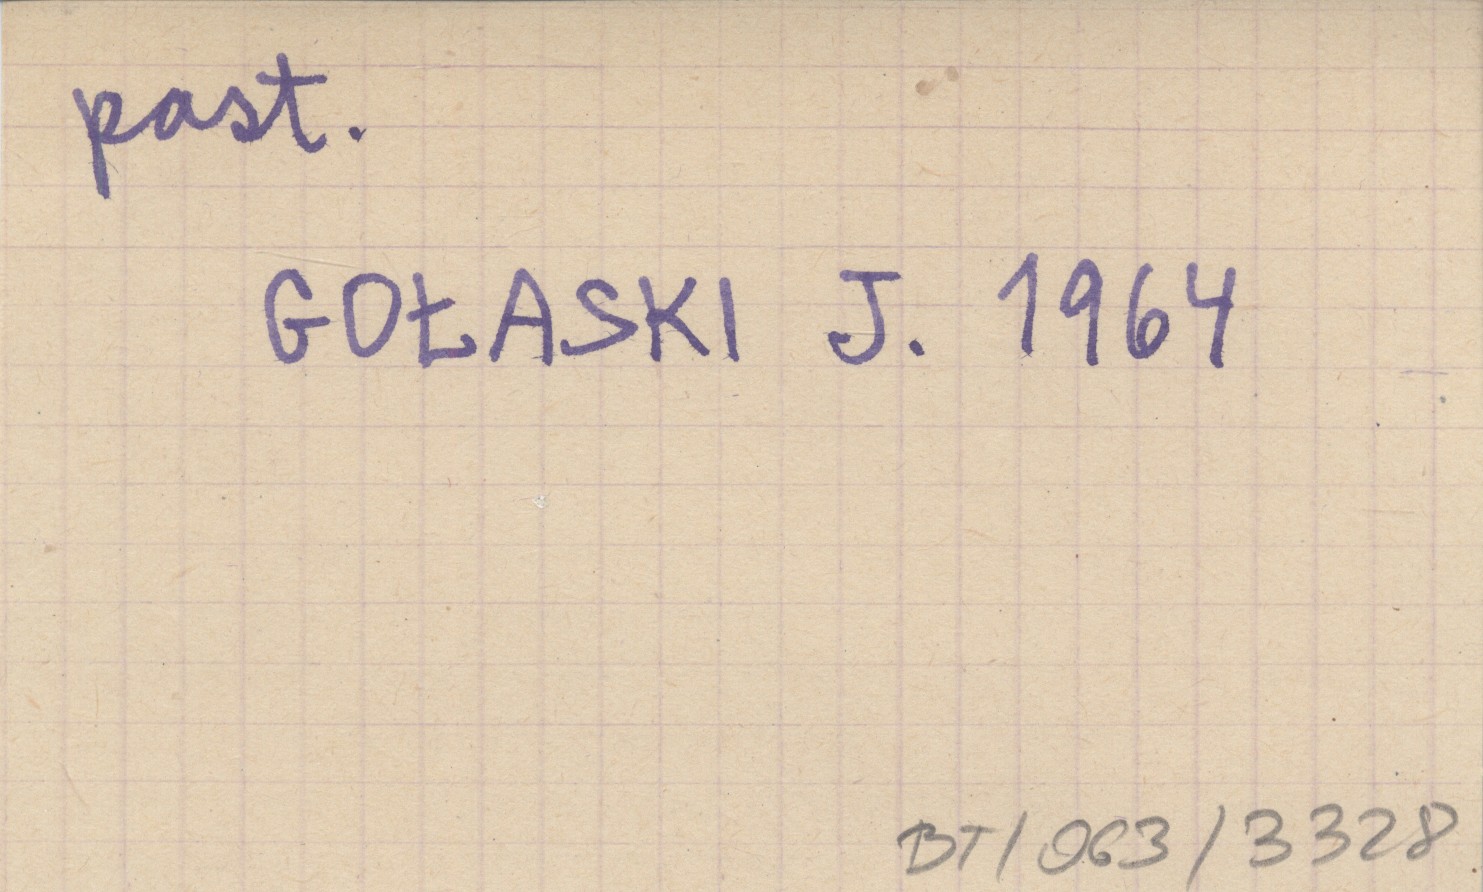 past.
GOŁASKI J. 1964
BT/063/3328